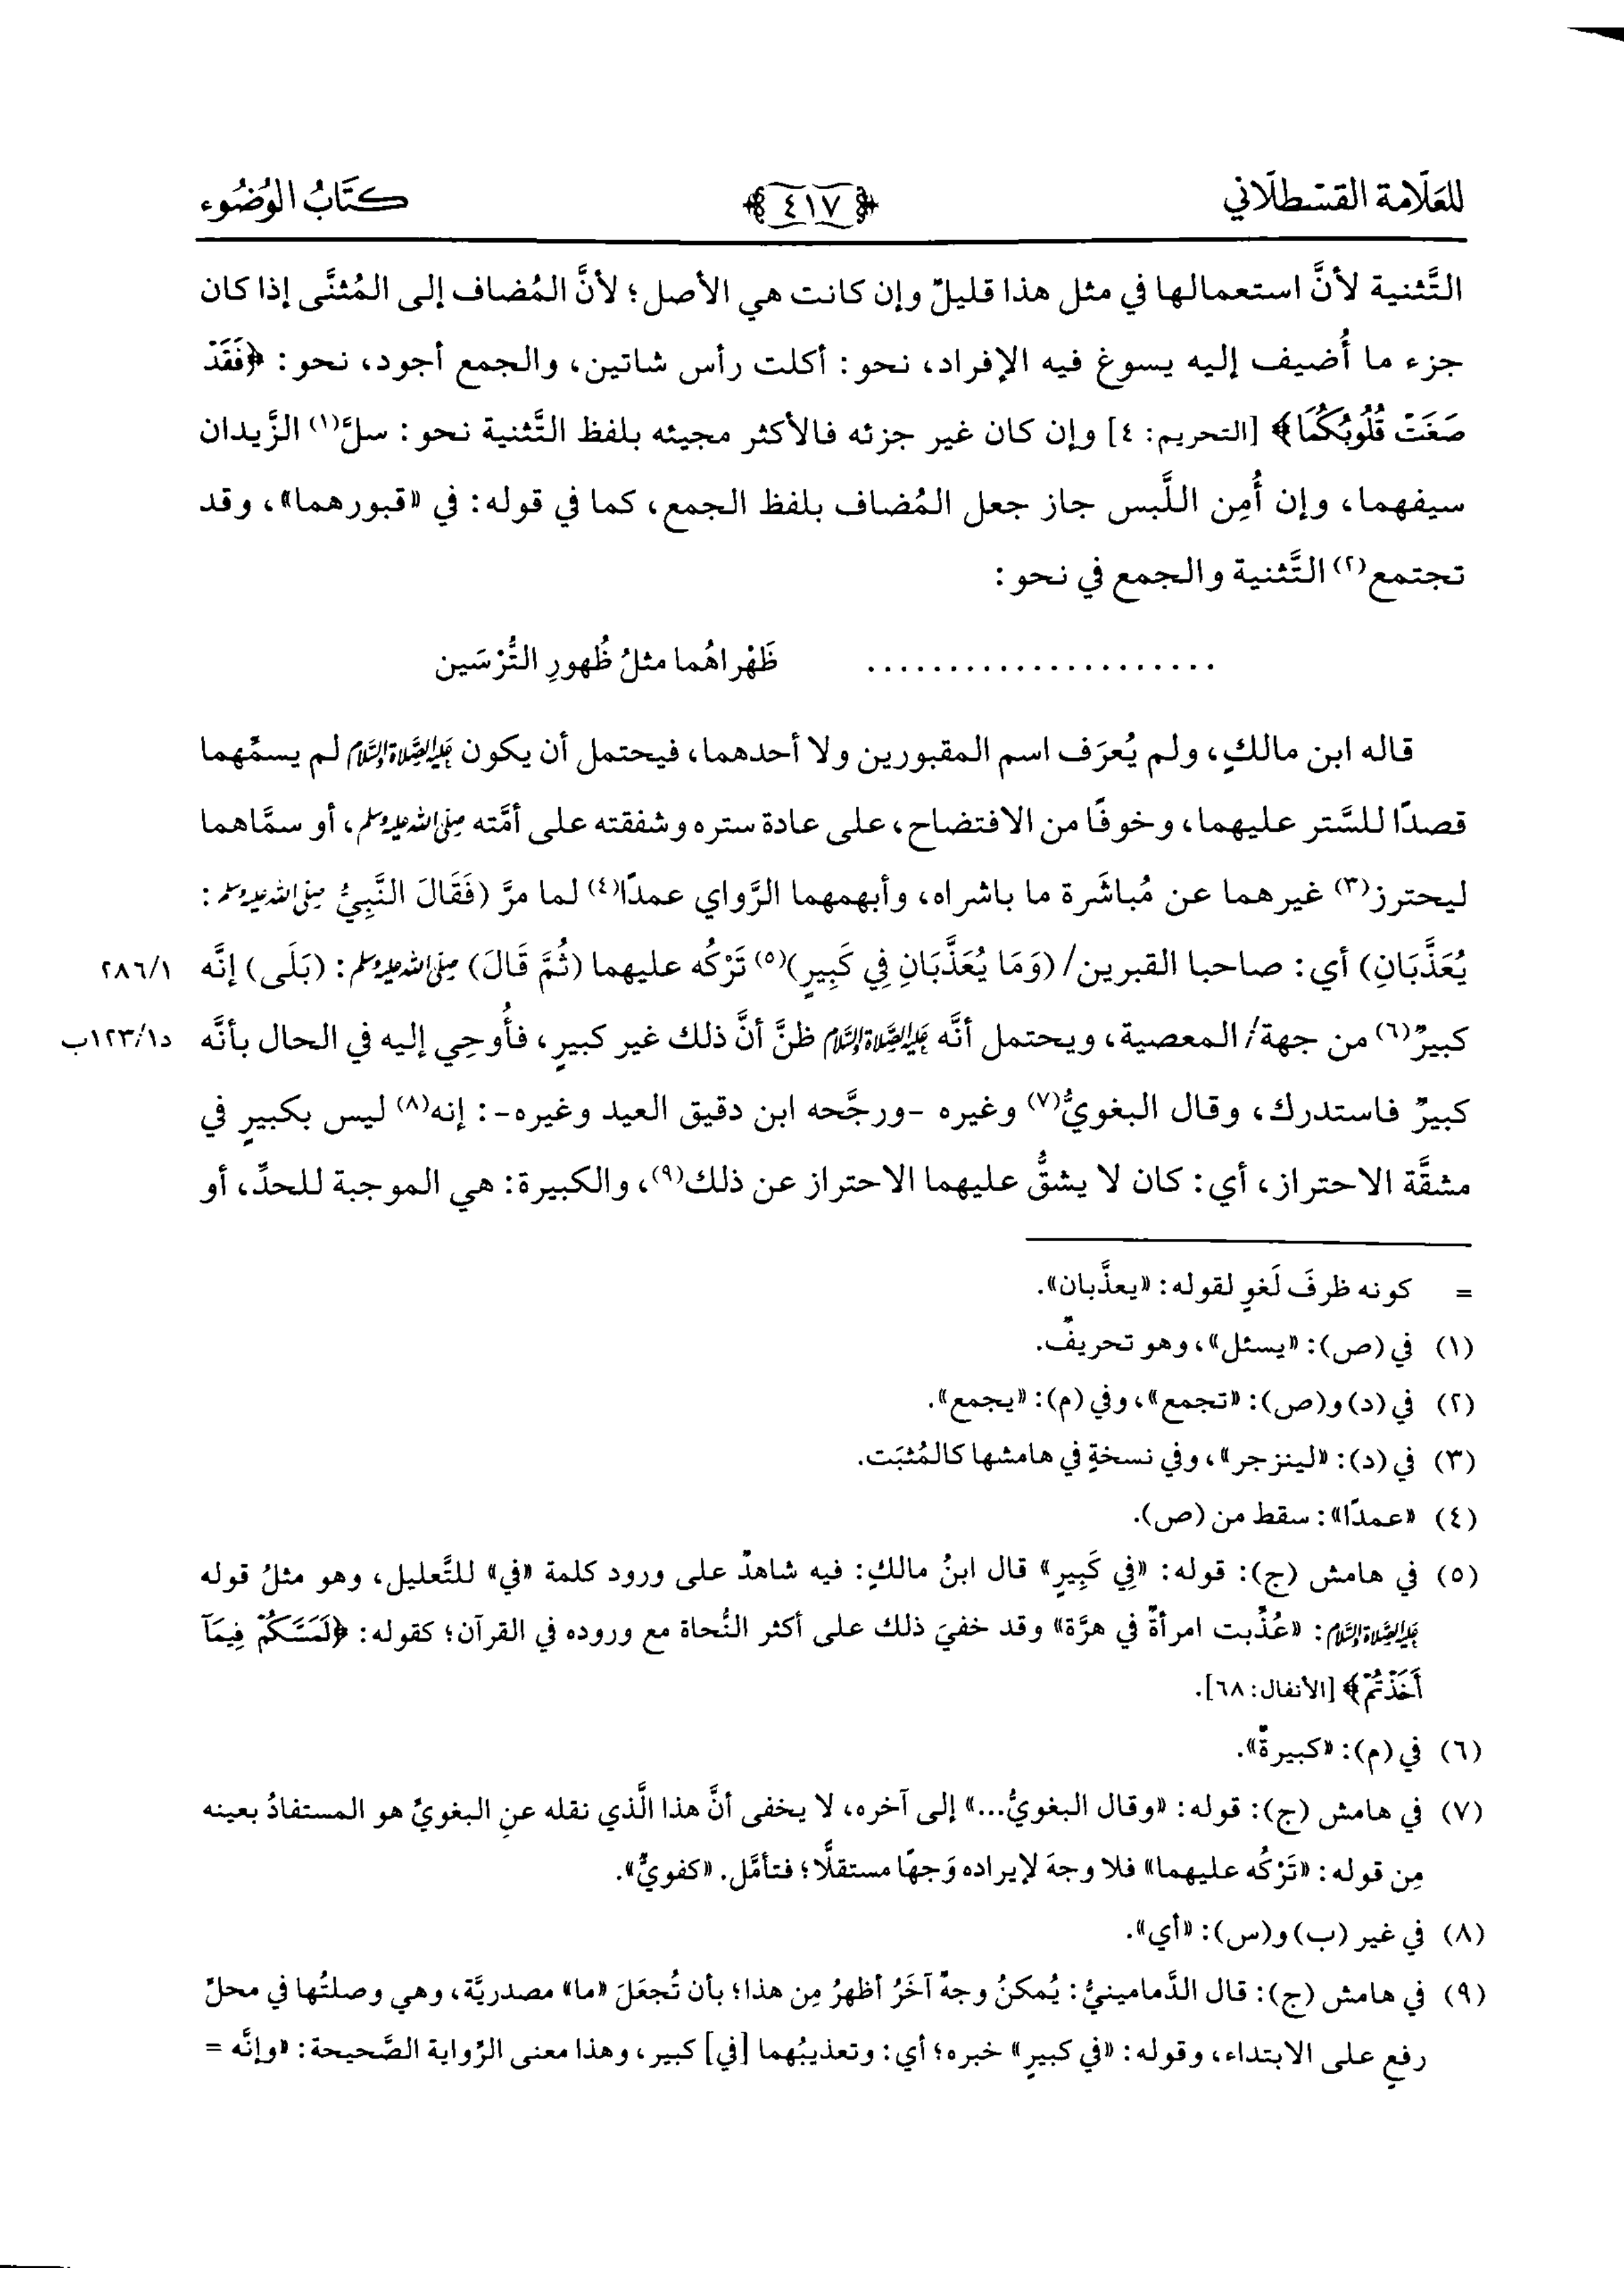 للعَلّامة القسْطلّاني ﴿٤١٧﴾ كتَابُ الوُضُوء
التَّثنية لأنَّ استعمالها في مثل هذا قليلٌ وإن كانت هي الأصل؛ لأنَّ المُضاف إلى المُثنَّى إذا كان
جزء ما أُضيف إليه يسوغ فيه الإفراد، نحو: أكلت رأس شاتين، والجمع أجود، نحو: ﴿فَقَدْ
صَغَتْ قُلُوبُكُمَا﴾ [التحريم: ٤] وإن كان غير جزئه فالأكثر مجيئه بلفظ التَّثنية نحو: سلَّ(١) الزَّيدان
سيفهما، وإن أُمِن اللَّبس جاز جعل المُضاف بلفظ الجمع، كما في قوله: في «قبورهما»، وقد
تجتمع(٢) التَّثنية والجمع في نحو:
...................... ظَهْراهُما مثلُ ظُهورِ التُّرْسَين
قاله ابن مالكٍ، ولم يُعرَف اسم المقبورين ولا أحدهما، فيحتمل أن يكون عَلَيْهِ الصَّلَاةُ وَالسَّلَامُ لم يسمِّهما
قصدًا للسَّتر عليهما، وخوفًا من الافتضاح، على عادة ستره وشفقته على أمَّته صلى الله عليه وسلم، أو سمَّاهما
ليحترز(٣) غيرهما عن مُباشَرة ما باشراه، وأبهمهما الرَّواي عمدًا(٤) لما مرَّ (فَقَالَ النَّبِيُّ صلى الله عليه وسلم:
يُعَذَّبَانِ) أي: صاحبا القبرين/ (وَمَا يُعَذَّبَانِ فِي كَبِيرٍ)(٥) تَرْكُه عليهما (ثُمَّ قَالَ) صلى الله عليه وسلم: (بَلَى) إنَّه ٢٨٦/١
كبيرٌ(٦) من جهة/ المعصية، ويحتمل أنَّه عَلَيْهِ الصَّلَاةُ وَالسَّلَامُ ظنَّ أنَّ ذلك غير كبيرٍ، فأُوحِي إليه في الحال بأنَّه د١٢٣/١ب
كبيرٌ فاستدرك، وقال البغويُّ(٧) وغيره -ورجَّحه ابن دقيق العيد وغيره-: إنه(٨) ليس بكبيرٍ في
مشقَّة الاحتراز، أي: كان لا يشقُّ عليهما الاحتراز عن ذلك(٩)، والكبيرة: هي الموجبة للحدِّ، أو
= كونه ظرفَ لَغوٍ لقوله: «يعذَّبان».
(١) في (ص): «يسئل»، وهو تحريفٌ.
(٢) في (د) و(ص): «تجمع»، وفي (م): «يجمع».
(٣) في (د): «لينزجر»، وفي نسخةٍ في هامشها كالمُثبَت.
(٤) «عمدًا»: سقط من (ص).
(٥) في هامش (ج): قوله: «فِي كَبِيرٍ» قال ابنُ مالكٍ: فيه شاهدٌ على ورود كلمة «في» للتَّعليل، وهو مثلُ قوله
عَلَيْهِ الصَّلَاةُ وَالسَّلَامُ: «عُذِّبت امرأةٌ في هرَّة» وقد خفيَ ذلك على أكثر النُّحاة مع وروده في القرآن؛ كقوله: ﴿لَمَسَّكُمْ فِيمَآ
أَخَذْتُمْ﴾ [الأنفال: ٦٨].
(٦) في (م): «كبيرةٌ».
(٧) في هامش (ج): قوله: «وقال البغويُّ...» إلى آخره، لا يخفى أنَّ هذا الَّذي نقله عنِ البغويِّ هو المستفادُ بعينه
مِن قوله: «تَرْكُه عليهما» فلا وجهَ لإيراده وَجهًا مستقلًّا؛ فتأمَّل. «كفويٌّ».
(٨) في غير (ب) و(س): «أي».
(٩) في هامش (ج): قال الدَّمامينيُّ: يُمكنُ وجهٌ آخَرُ أظهرُ مِن هذا؛ بأن تُجعَلَ «ما» مصدريَّة، وهي وصلتُها في محلِّ
رفعٍ على الابتداء، وقوله: «في كبيرٍ» خبره؛ أي: وتعذيبُهما [في] كبير، وهذا معنى الرِّواية الصَّحيحة: «وإنَّه =